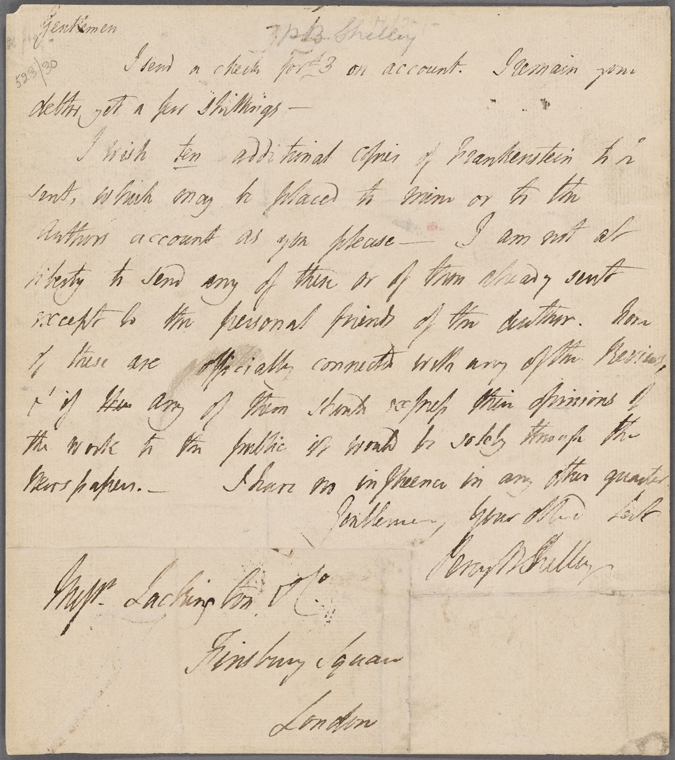 Gentlemen
P B Shelley
523/30
I send a check for £3 on account. I remain your
debtor yet a few shillings —
I wish ten additional copies of Frankenstein to be
sent, which may be placed to mine or to the
Author's account as you please — I am not at
liberty to send any of these or of those already sent
except to the personal friends of the Author. None
of these are officially connected with any of the Reviews,
& if any of them should express their opinions of
the work to the public it would be solely through the
Newspapers. — I have no influence in any other quarter
Gentlemen, your obed Sert
Percy B Shelley
Messrs. Lackington & Co.
Finsbury Square
London